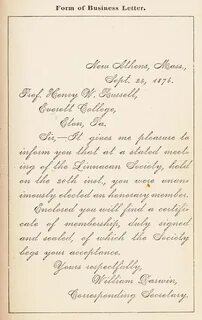 Form of Business Letter.
New Athens, Mass.,
Sept. 24, 1876.
Prof. Henry W. Russell,
Everett College,
Elon, Pa.
Sir,—It gives me pleasure to
inform you that at a stated meet-
ing of the Linnaean Society, held
on the 20th inst., you were unan-
imously elected an honorary member.
Enclosed you will find a certifi-
cate of membership, duly signed
and sealed, of which the Society
begs your acceptance.
Yours respectfully,
William Darwin,
Corresponding Secretary.